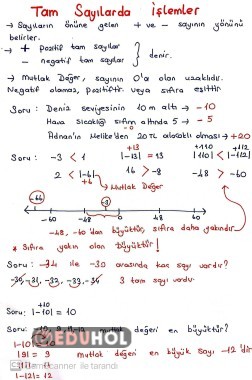 Tam Sayılarda İşlemler
→ Sayıların önüne gelen + ve - sayının yönünü
belirler.
→ + pozitif tam sayılar
- negatif tam sayılar } denir.
→ Mutlak Değer, sayının 0'a olan uzaklıdı.
Negatif olamaz, pozitiftir veya sıfıra eşittir
Soru: Deniz seviyesinin 10 m altı → -10
Hava sıcaklığı sıfırın altında 5 → -5
Adnan'ın Melike'den 20 TL alacaklı olması → +20
+13 +110 +112
Soru: -3 < 1 |-13| = 13 |110| < |-112|
2 < |-6| -16 < -8 -48 > -60
+6
→ Mutlak Değer
-66 -3
-60 -48 0 48 60
-48, -60'dan büyüktür, sıfıra daha yakındır
* Sıfıra yakın olan büyüktür!
Soru: -34 ile -30 arasında kaç sayı vardır?
-30, -31, -32, -33, -34 3 tam sayı vardır
+10
Soru: |-10| = 10
Soru: mutlak değeri en büyüktür?
|-10| = 10
|9| = 9 mutlak değeri en büyük sayı -12'dir
|-12| = 12
EDUHOL
CamScanner ile tarandı